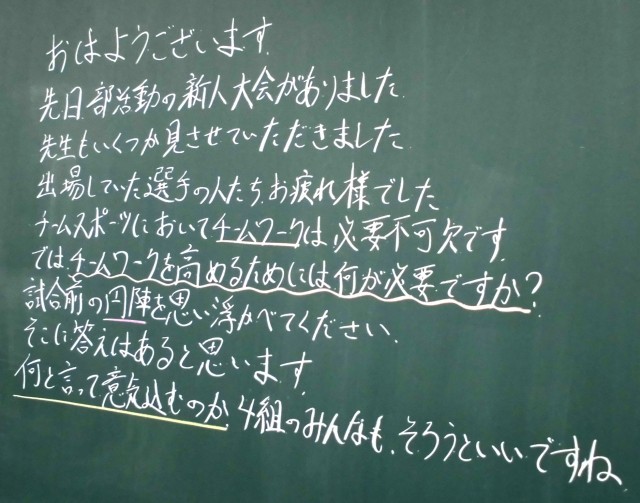 おはようございます
先日、部活動の新人大会がありました。
先生もいくつか見させていただきました。
出場していた選手の人たち、お疲れ様でした
チームスポーツにおいてチームワークは、必要不可欠です。
では、チームワークを高めるためには何が必要ですか?
試合前の円陣を思い浮かべてください。
そこに答えはあると思います。
何と言って意気込むのか、4組のみんなも、そろうといいですね